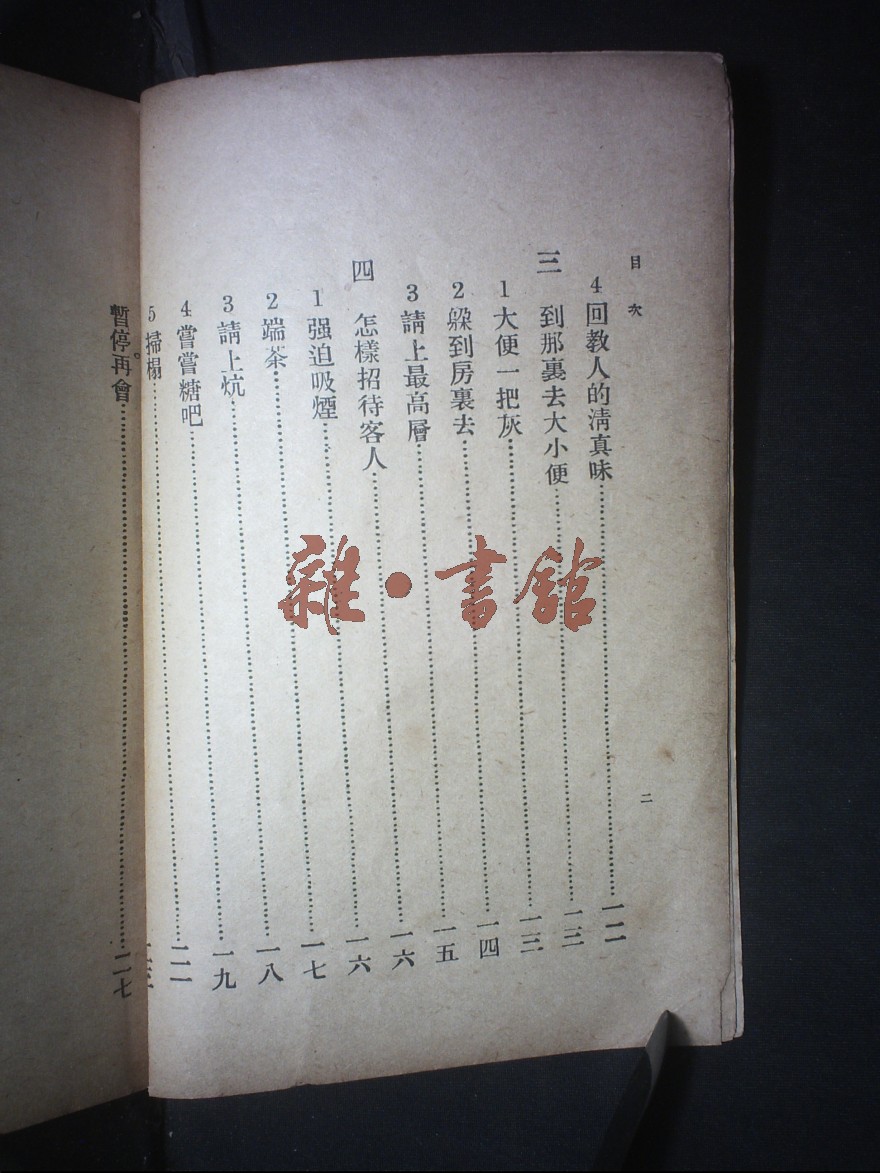 目次
4 回教人的清真味……一二
三 到那裏去大小便……一三
1 大便一把灰……一三
2 躱到房裏去……一四
3 請上最高層……一五
四 怎樣招待客人……一六
1 强迫吸煙……一六
2 端茶……一七
3 請上炕……一八
4 嘗嘗糖吧……一九
5 掃榻……二一
暫停再會……二七
二
雜·書館